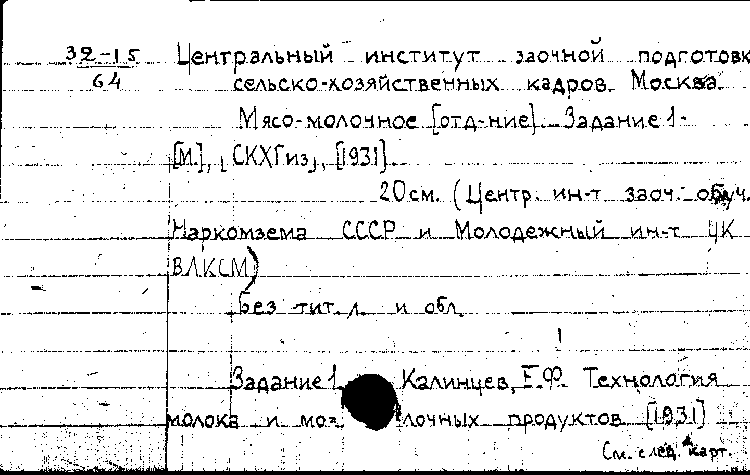 32-15
64
Центральный институт заочной подготовк
сельско-хозяйственных кадров. Москва.
Мясо-молочное [отд-ние]. Задание 1-
[М.], [СКХГиз], [1931].
20 см. (Центр. ин-т заоч. обуч.
Наркомзема СССР и Молодежный ин-т ЦК
ВЛКСМ)
Без тит. л. и обл.
Задание 1. Калинцев, Е.Ф. Технология
молока и мо= лочных продуктов [1931]
См. след. карт.